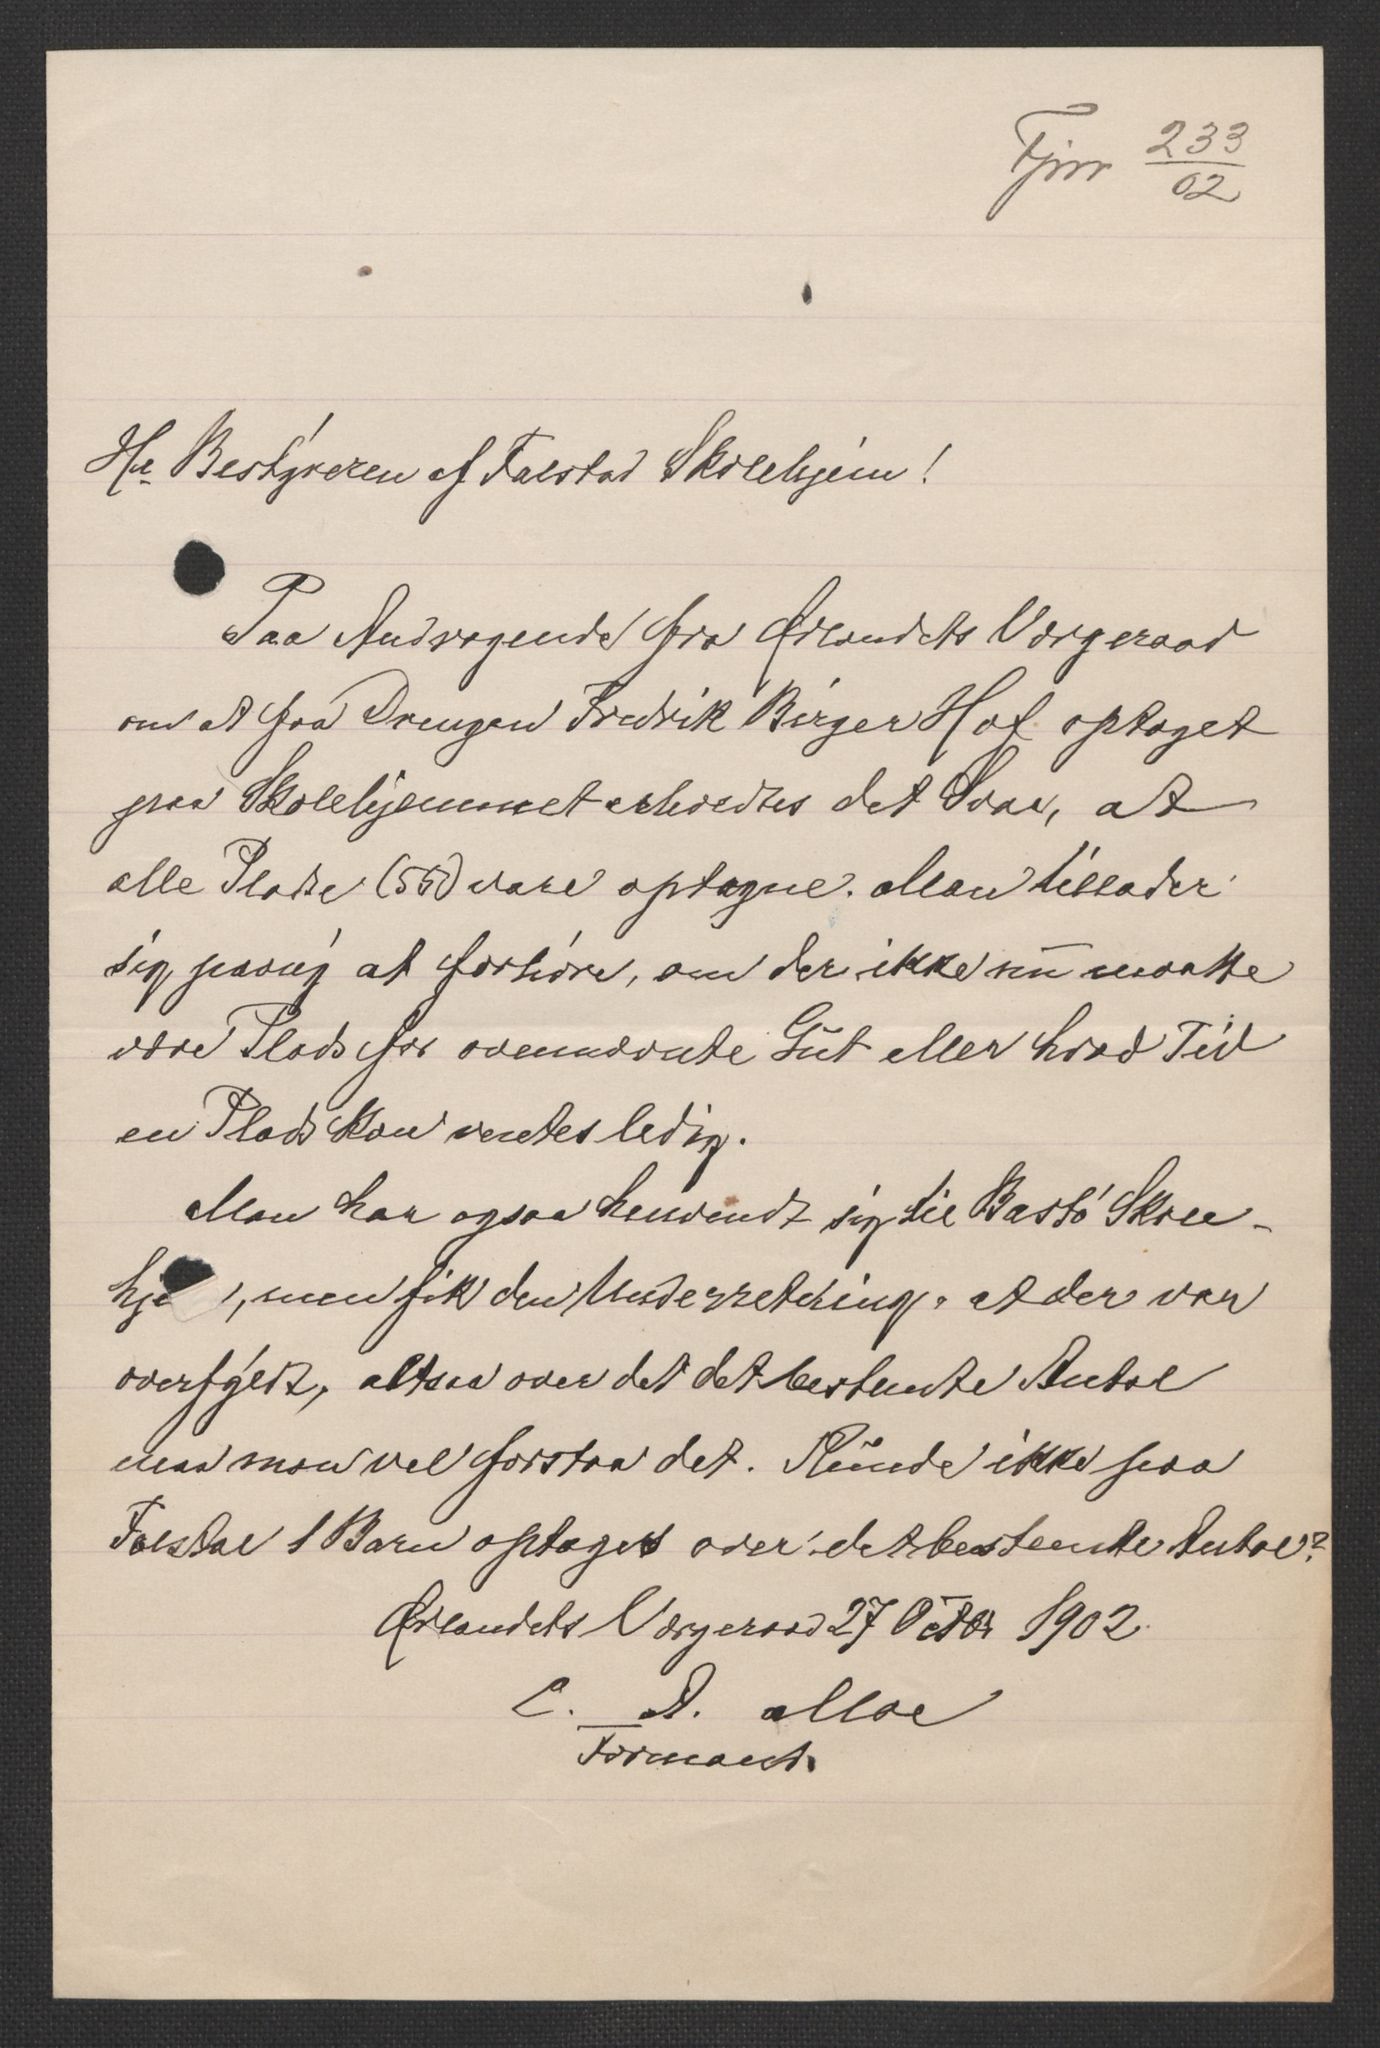 Fjnr 233/02
Hr Bestyreren af Falstad Skolehjem!
Paa Andragende fra Ørlandets Værgeraad
om at faa Drengen Fredrik Birger Hof optaget
paa Skolehjemmet erholdtes det Svar, at
alle Pladse (55) vare optagne. Man tillader
sig paany at forhøre, om der ikke nu maatte
være Plads for ovennævnte Gut eller hvad Tid
en Plads kan ventes ledig.
Man har ogsaa henvendt sig til Bastö Skole-
hje, men fik den Underretning, at der var
overfyldt, altsaa over det det bestemte Antal
maa man vel forstaa det. Kunde ikke paa
Falstad 1 Barn optages over det bestemte Antal?
Ørlandets Værgeraad 27 Octbr 1902
C. A. Moe
Formand.